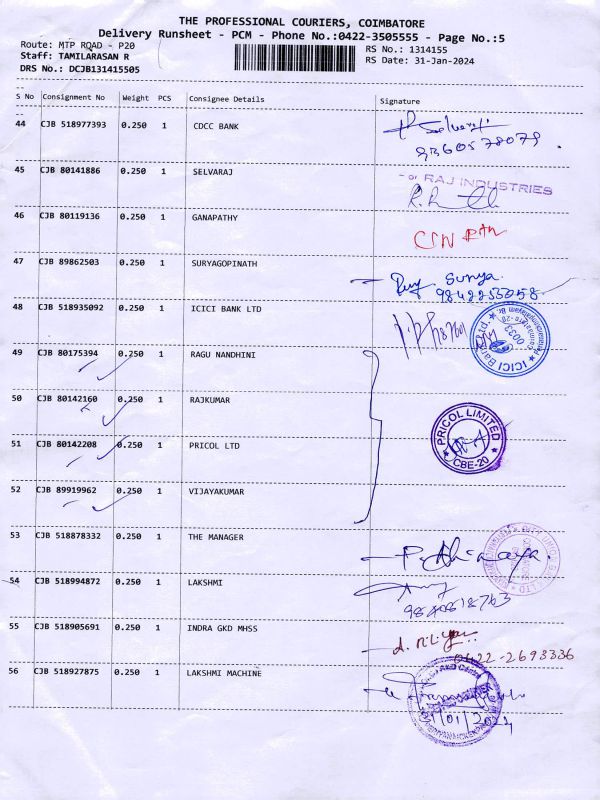 THE PROFESSIONAL COURIERS, COIMBATORE
Delivery Runsheet - PCM - Phone No.:0422-3505555 - Page No.:5
Route: MTP ROAD - P20
RS No.: 1314155
Staff: TAMILARASAN R
RS Date: 31-Jan-2024
DRS No.: DCJB131415505
S No Consignment No Weight PCS Consignee Details Signature
44 CJB 518977393 0.250 1 CDCC BANK
45 CJB 80141886 0.250 1 SELVARAJ
RAJ INDUSTRIES
46 CJB 80119136 0.250 1 GANAPATHY
47 CJB 89862503 0.250 1 SURYAGOPINATH
Surya
48 CJB 518935092 0.250 1 ICICI BANK LTD
49 CJB 80175394 0.250 1 RAGU NANDHINI
50 CJB 80142160 0.250 1 RAJKUMAR
51 CJB 80142208 0.250 1 PRICOL LTD
PRICOL LIMITED
CBE-20
52 CJB 89919962 0.250 1 VIJAYAKUMAR
53 CJB 518878332 0.250 1 THE MANAGER
54 CJB 518994872 0.250 1 LAKSHMI
55 CJB 518905691 0.250 1 INDRA GKD MHSS
0422-2693336
56 CJB 518927875 0.250 1 LAKSHMI MACHINE